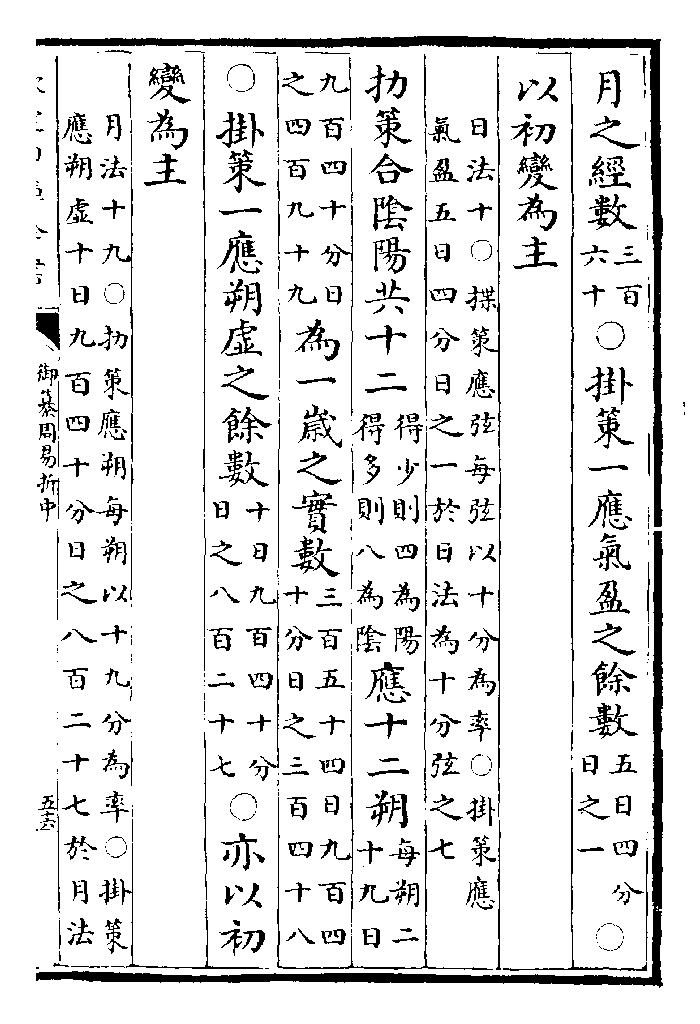 月之經數三百六十○掛策一應氣盈之餘數五日四分日之一○
以初變為主
日法十○揲策應弦每弦以十分為率○掛策應
氣盈五日四分日之一於日法為十分弦之七
扐策合陰陽共十二得少則四為陽得多則八為陰應十二朔每朔二十九日
九百四十分日之四百九十九為一歲之實數三百五十四日九百四十分日之三百四十八
○掛策一應朔虛之餘數十日九百四十分日之八百二十七○亦以初
變為主
月法十九○扐策應朔每朔以十九分為率○掛策
應朔虛十日九百四十分日之八百二十七於月法
御纂周易折中